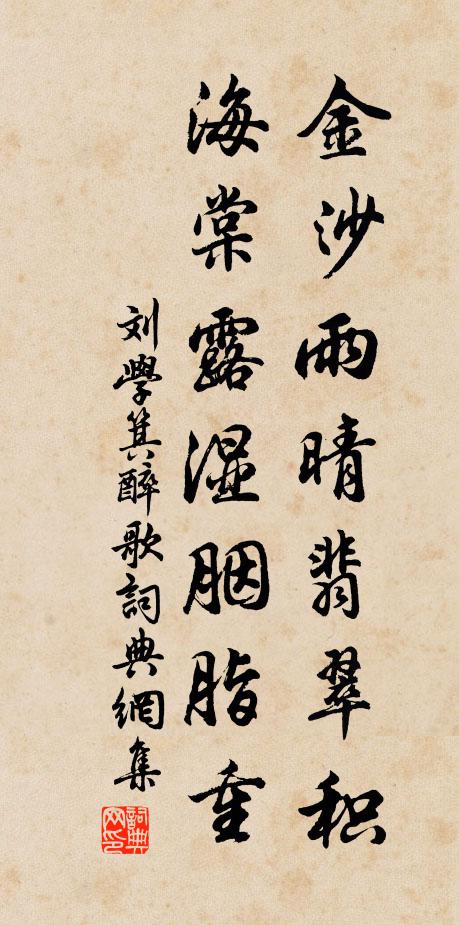 金沙雨晴翡翠积
海棠露湿胭脂重
刘學箕醉歌詞典網集
詞典网印